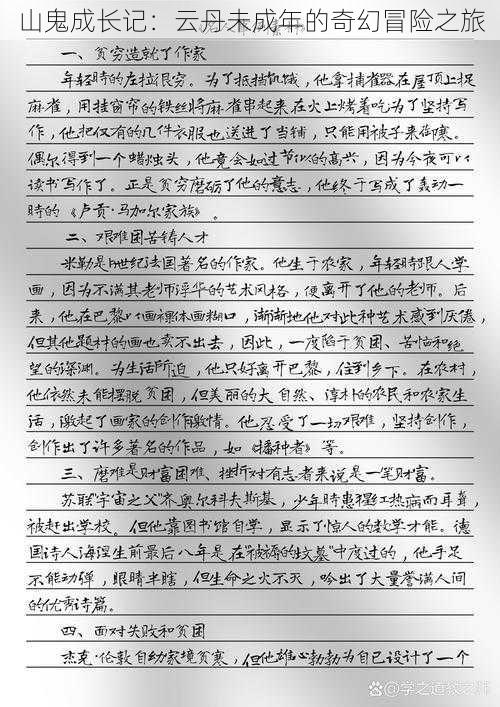 山鬼成长记：云丹未成年的奇幻冒险之旅
一、贫穷造就了作家
年轻時的左拉很穷。为了抵挡饥饿，他拿捕雀器在屋顶上捉
麻雀，用挂窗帘的铁丝将麻雀串起来在火上烤着吃为了坚持写
作，他把仅有的几件衣服也送进了当铺，只能用被子来御寒。
偶尔得到一个蜡烛头，他竟会如过节似的高兴，因为今夜可以
读书写作了。正是贫穷磨砺了他的意志，他终于写成了轰动一
時的《卢贡·马加尔家族》。
二、艰难困苦铸人才
米勒是19世纪法国著名的作家。他生于农家，年轻時跟人学
画，因为不满其老师浮华的艺术风格，便离开了他的老师。后
来，他在巴黎以画裸体画糊口，渐渐地他对此种艺术感到厌倦，
但其他题材的画也卖不出去，因此，一度陷于贫困、苦恼和绝
望的深渊。为生活所迫，他只好离开巴黎，住到乡下。在农村，
他依然未能摆脱贫困，但美丽的大自然、淳朴的农民和农家生
活，激起了画家的创作激情。他忍受了一切艰难，坚持创作，
创作出了许多著名的作品，如《播种者》等。
三、磨难是财富困难、挫折对有志者来说是一笔财富。
苏联"宇宙之父"齐奥尔科夫斯基，少年時患猩红热病而耳聋，
被赶出学校。但他靠图书馆自学，显示了惊人的数学才能。德
国诗人海涅生前最后八年是在"被褥的坟墓"中度过的，他手足
不能动弹，眼睛半瞎，但生命之火不灭，吟出了大量誉满人间
的优秀诗篇。
四、面对失败和贫困
杰克·伦敦自幼家境贫寒，但他雄心勃勃为自己设计了一个